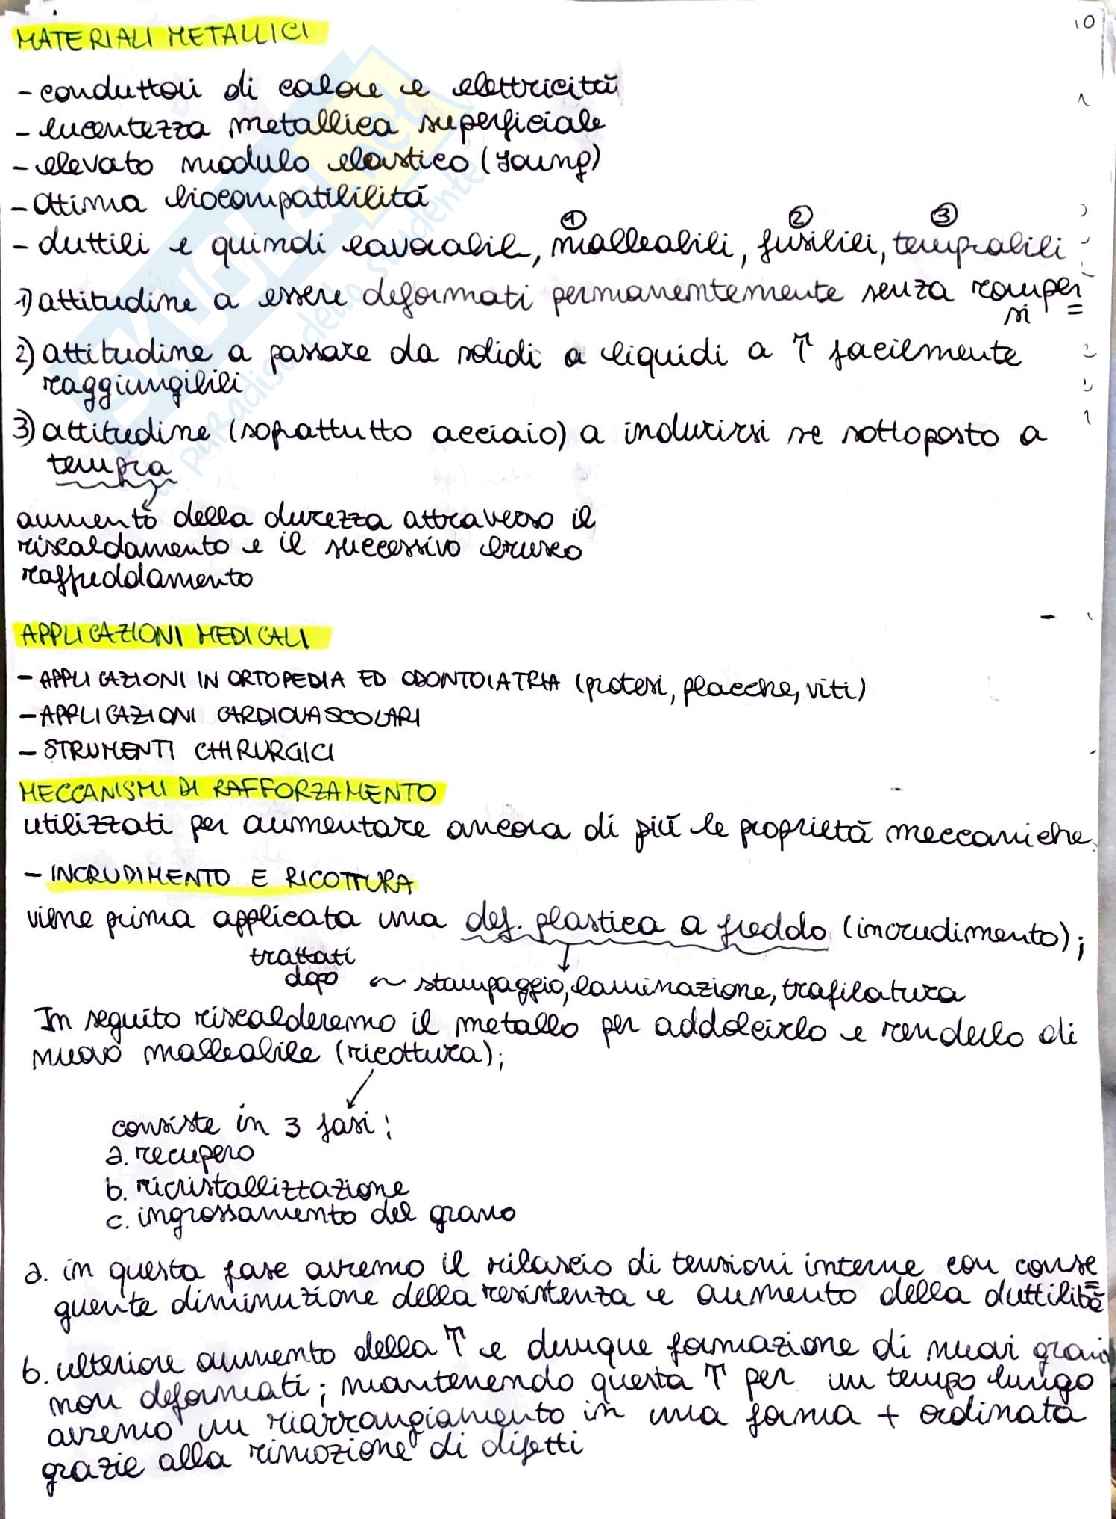 10
MATERIALI METALLICI
- conduttori di calore e elettricità
- lucentezza metallica superficiale
- elevato modulo elastico (Young)
- ottima biocompatibilità
① ② ③
- duttili e quindi lavorabili, malleabili, fusibili, temprabili
1) attitudine a essere deformati permanentemente senza romper=
si
2) attitudine a passare da solidi a liquidi a T facilmente
raggiungibili
3) attitudine (soprattutto acciaio) a indurirsi se sottoposto a
tempra
aumento della durezza attraverso il
riscaldamento e il successivo brusco
raffreddamento
APPLICAZIONI MEDICALI
- APPLICAZIONI IN ORTOPEDIA ED ODONTOIATRIA (protesi, placche, viti)
- APPLICAZIONI CARDIOVASCOLARI
- STRUMENTI CHIRURGICI
MECCANISMI DI RAFFORZAMENTO
utilizzati per aumentare ancora di più le proprietà meccaniche.
- INCRUDIMENTO E RICOTTURA
viene prima applicata una def. plastica a freddo (incrudimento);
trattati
dopo ~ stampaggio, laminazione, trafilatura
In seguito riscalderemo il metallo per addolcirlo e renderlo di
nuovo malleabile (ricottura);
consiste in 3 fasi:
a. recupero
b. ricristallizzazione
c. ingrossamento del grano
a. in questa fase avremo il rilascio di tensioni interne con conse=
guente diminuzione della resistenza e aumento della duttilità
b. ulteriore aumento della T e dunque formazione di nuovi grani
non deformati; mantenendo questa T per un tempo lungo
avremo un riarrangiamento in una forma + ordinata
grazie alla rimozione di difetti